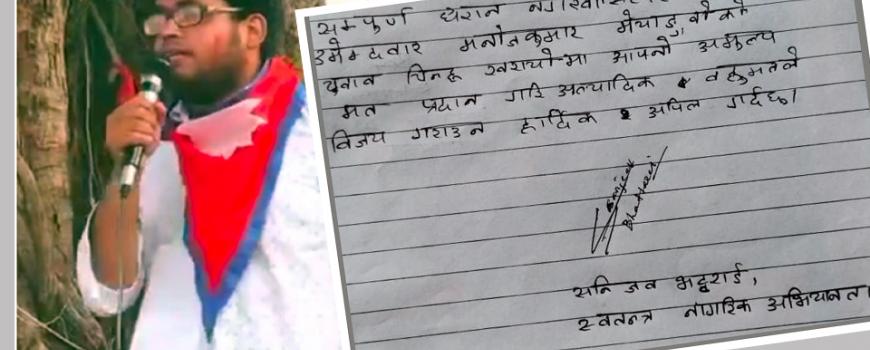 सम्पूर्ण धरान
उमेम्दवार मनोजकुमार मेयाङ्वोको
चुनाव चिन्ह खरायोमा आफ्नो अमुल्य
मत प्रदान गरि अत्याधिक वहुमतले
विजय गराउन हार्दिक अपिल गर्दछु।
Bhattarai
सन्जिव भट्टराई,
स्वतन्त्र नागरिक अभियानता